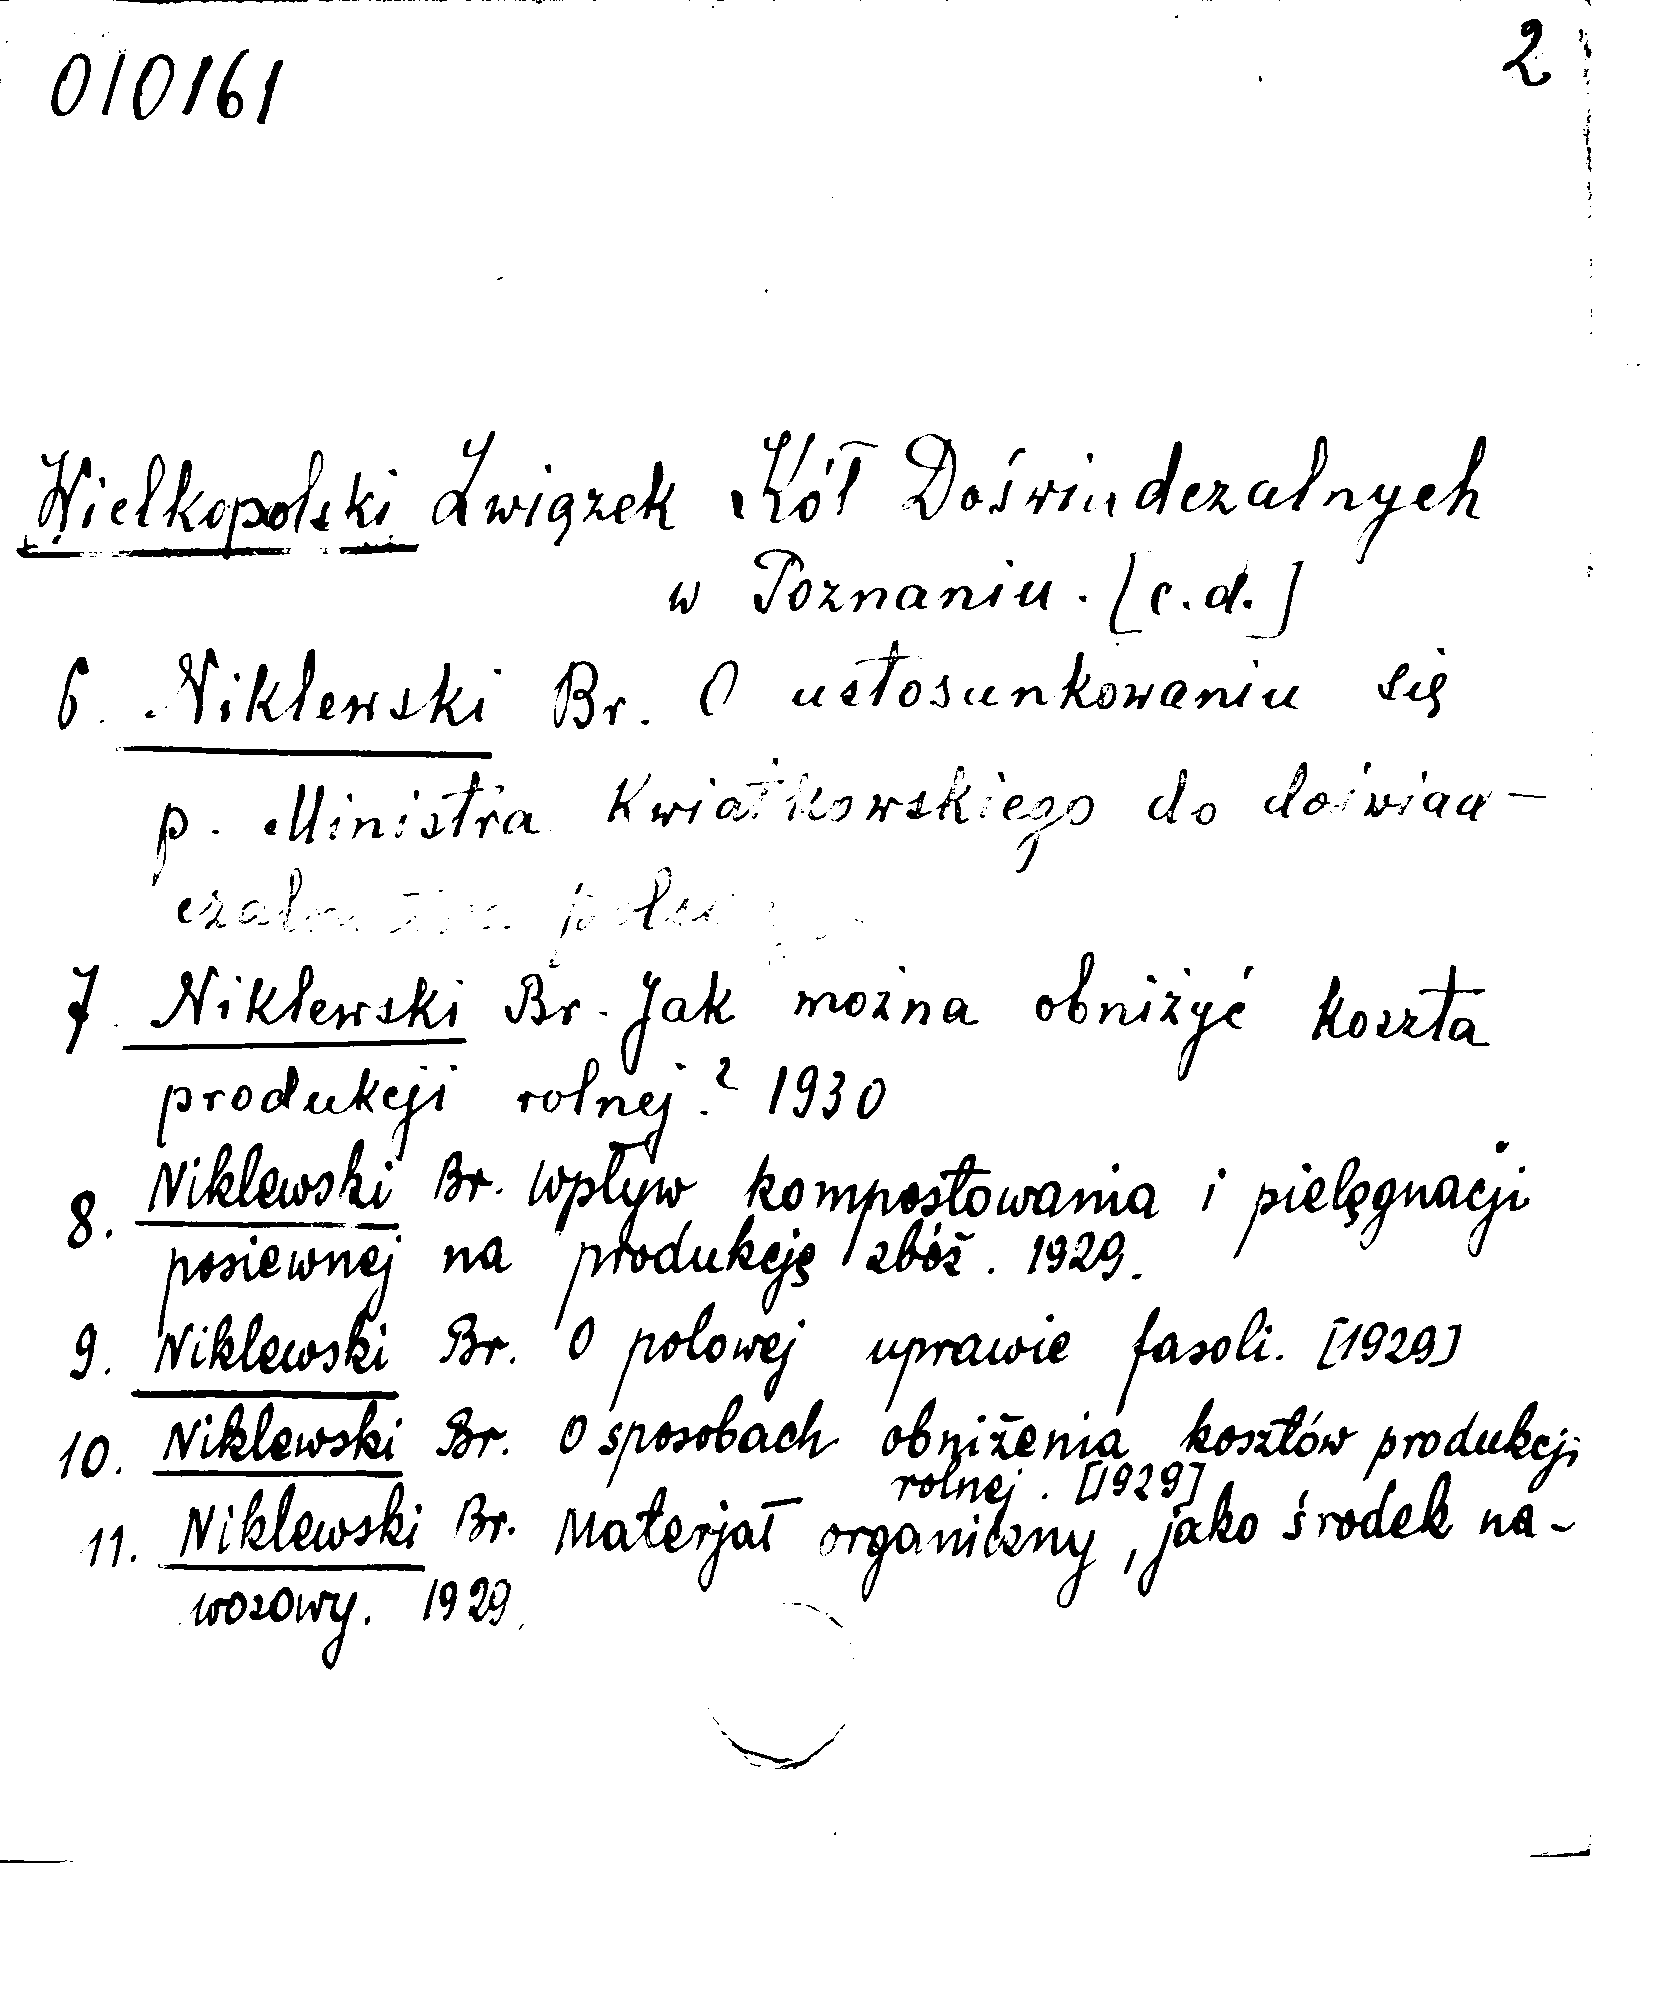 010161
2
Wielkopolski Związek Kół Doświadczalnych
w Poznaniu. [c.d.]
6. Niklewski Br. O ustosunkowaniu się
p. Ministra Kwiatkowskiego do doświad-
7. Niklewski Br. Jak można obniżyć koszta
produkcji rolnej? 1930
8. Niklewski Br. Wpływ kompostowania i pielęgnacji
posiewnej na produkcję zbóż. 1929.
9. Niklewski Br. O polowej uprawie fasoli. [1929]
10. Niklewski Br. O sposobach obniżenia kosztów produkcji
rolnej. [1929]
11. Niklewski Br. Materjał organiczny, jako środek na-
wozowy. 1929.